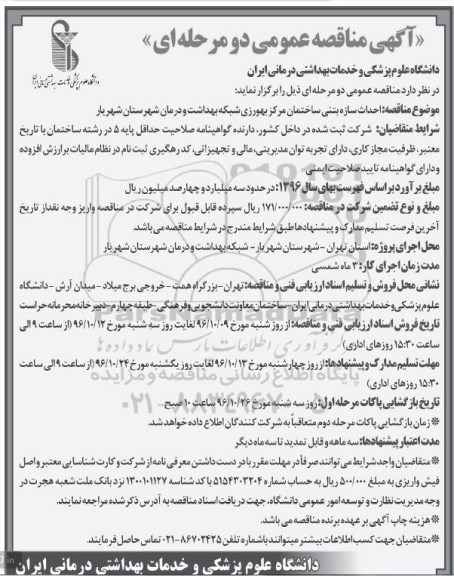 «آگهی مناقصه عمومی دو مرحله ای»
دانشگاه علوم پزشکی و خدمات بهداشتی درمانی ایران
در نظر دارد مناقصه عمومی دو مرحله ای ذیل را برگزار نماید:
موضوع مناقصه: احداث سازه بتنی ساختمان مرکز بهورزی شبکه بهداشت و درمان شهرستان شهریار
شرایط متقاضیان: شرکت ثبت شده در داخل کشور، دارنده گواهینامه صلاحیت حداقل پایه ۵ در رشته ساختمان با تاریخ
معتبر، ظرفیت مجاز کاری، دارای تجربه توان مدیریتی، مالی و تجهیزاتی، کد رهگیری ثبت نام در نظام مالیات بر ارزش افزوده
و دارای گواهینامه تایید صلاحیت ایمنی
مبلغ برآورد بر اساس فهرست بهای سال ۱۳۹۶: در حدود سه میلیارد و چهارصد میلیون ریال
مبلغ و نوع تضمین شرکت در مناقصه: ۱۷۱/۰۰۰/۰۰۰ ریال سپرده قابل قبول برای شرکت در مناقصه واریز وجه نقد از تاریخ
آخرین فرصت تسلیم مدارک و پیشنهادها طبق شرایط مندرج در شرایط مناقصه می باشد.
محل اجرای پروژه: استان تهران - شهرستان شهریار - شبکه بهداشت و درمان شهرستان شهریار
مدت زمان اجرای کار: ۳ ماه شمسی
نشانی محل فروش و تسلیم اسناد ارزیابی فنی و مناقصه: تهران - بزرگراه همت - خروجی برج میلاد - میدان آرش - دانشگاه
علوم پزشکی و خدمات بهداشتی درمانی ایران - ساختمان معاونت دانشجویی و فرهنگی - طبقه چهارم - دبیرخانه محرمانه حراست
تاریخ فروش اسناد ارزیابی فنی و مناقصه: از روز شنبه مورخ ۹۶/۱۰/۰۹ لغایت روز سه شنبه مورخ ۹۶/۱۰/۱۲ (از ساعت ۹ الی
ساعت ۱۵:۳۰ روزهای اداری)
مهلت تسلیم مدارک و پیشنهادها: از روز چهارشنبه مورخ ۹۶/۱۰/۱۳ لغایت روز یکشنبه مورخ ۹۶/۱۰/۲۴ (از ساعت ۹ الی ساعت
۱۵:۳۰ روزهای اداری)
تاریخ بازگشایی پاکات مرحله اول: روز سه شنبه مورخ ۹۶/۱۰/۲۶ ساعت ۱۰ صبح
* زمان بازگشایی پاکات مرحله دوم متعاقباً به شرکت کنندگان اطلاع داده خواهد شد.
مدت اعتبار پیشنهادها: سه ماهه و قابل تمدید تا سه ماه دیگر
* متقاضیان واجد شرایط می توانند صرفاً در مهلت مقرر با در دست داشتن معرفی نامه از شرکت و کارت شناسایی معتبر و اصل
فیش واریزی به مبلغ ۵۰۰/۰۰۰ ریال به حساب شماره ۵۱۵۴۳۰۳۲۰۴ با کد شناسه ۱۳۰۰۱۰۱۱۲۷ نزد بانک ملت شعبه هجرت در
وجه مدیریت نظارت و توسعه امور عمومی دانشگاه، جهت دریافت اسناد مناقصه به آدرس ذکر شده مراجعه نمایند.
* هزینه چاپ آگهی بر عهده برنده مناقصه می باشد.
* متقاضیان جهت کسب اطلاعات بیشتر میتوانند با شماره تلفن ۸۶۷۰۲۴۲۵-۰۲۱ تماس حاصل فرمایند.
دانشگاه علوم پزشکی و خدمات بهداشتی درمانی ایران